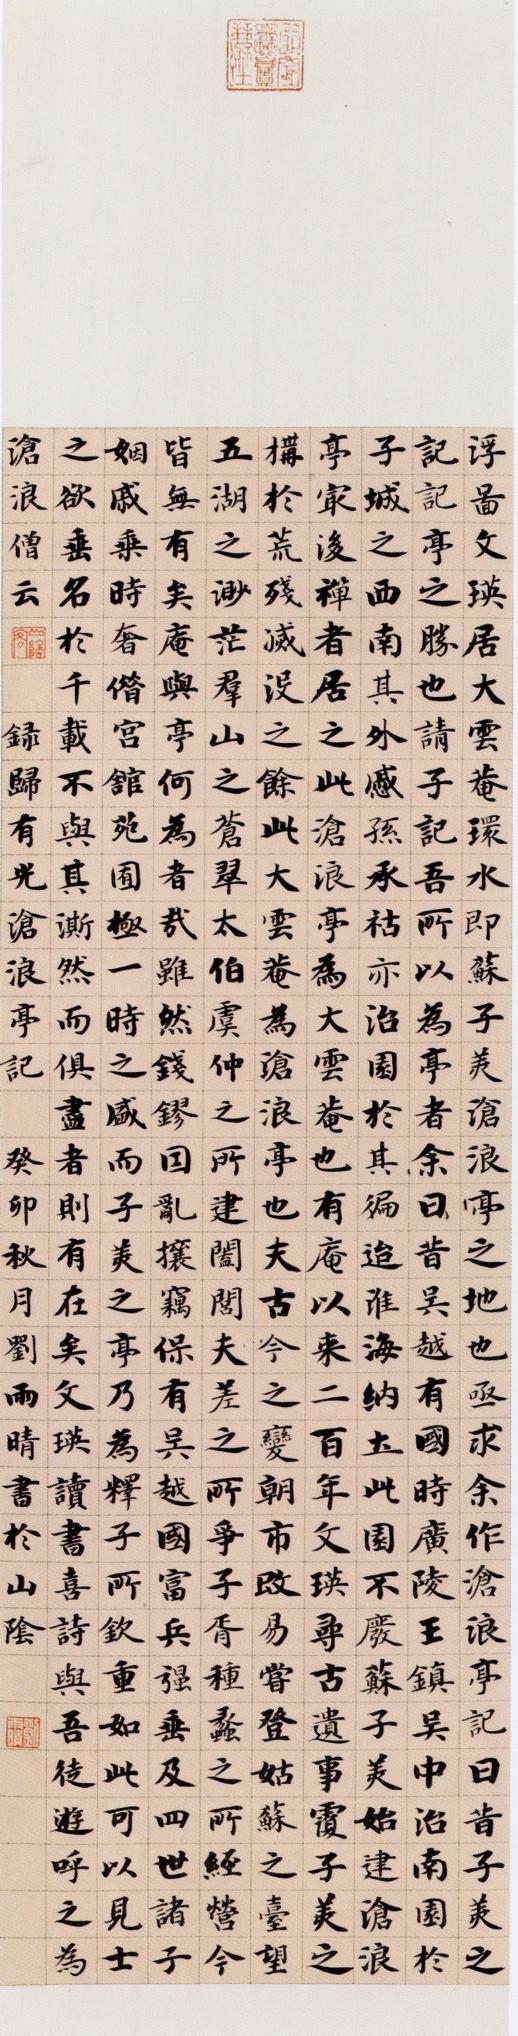 浮啚文瑛居大雲菴環水即蘇子美滄浪亭之地也亟求余作滄浪亭記曰昔子美之
記記亭之勝也請子記吾所以為亭者余曰昔吳越有國時廣陵王鎮吳中治南園於
子城之西南其外戚孫承祜亦治園於其徧迨淮海納土此園不廢蘇子美始建滄浪
亭㝡後禪者居之此滄浪亭為大雲菴也有庵以来二百年文瑛尋古遺事覆子美之
構於荒殘滅没之餘此大雲菴為滄浪亭也夫古今之變朝市改易嘗登姑蘇之臺望
五湖之渺茫羣山之蒼翠太伯虞仲之所建闔閭夫差之所爭子胥種蠡之所經營今
皆無有矣庵與亭何為者㦲雖然錢鏐因亂攘竊保有吳越國富兵强垂及四世諸子
姻戚乘時奢僭宮館苑囿極一時之盛而子美之亭乃為釋子所欽重如此可以見士
之欲垂名於千載不與其澌然而俱盡者則有在矣文瑛讀書喜詩與吾徒遊呼之為
滄浪僧云 録歸有光滄浪亭記 癸卯秋月劉雨晴書於山陰